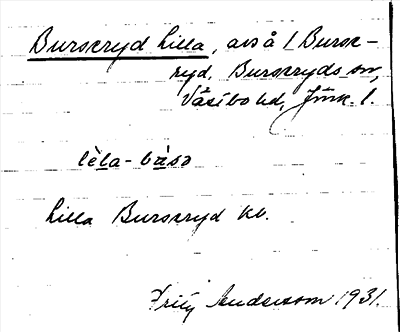 Burseryd Lilla, avs å 1 Burse-
ryd, Burseryds sn,
Västbo hd, Jönk. l.
lèla-bàsə
Lilla Burseryd kv.
Fritz Anderson 1931.